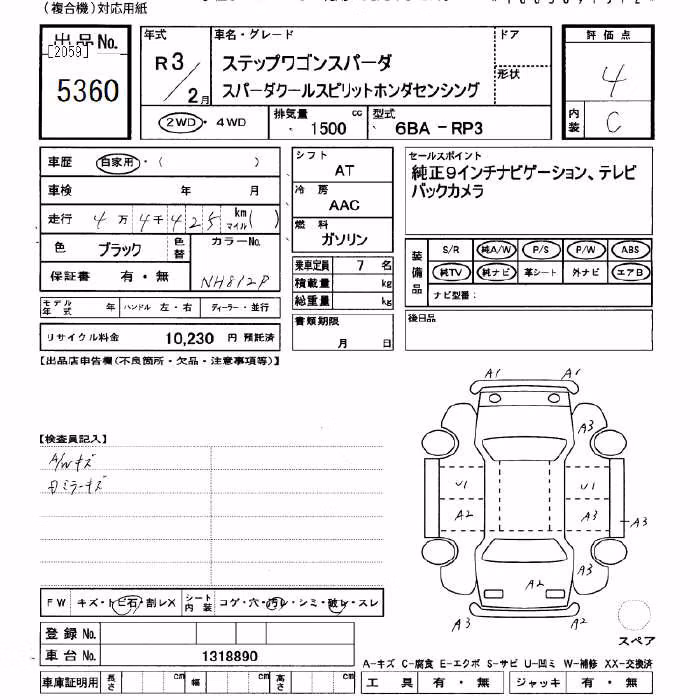 (複合機)対応用紙
出品No.
[2059]
5360
年式
R3/2月
車名・グレード
ステップワゴンスパーダ
スパーダクールスピリットホンダセンシング
ドア
形状
2WD・4WD
排気量
1500 cc
型式
6BA -RP3
評価点
4
内装
C
車歴 自家用・( )
車検 年 月
走行 4万4千425 km マイル( )
色 ブラック 色替
カラーNo.
NH812P
保証書 有・無
モデル年式 年 ハンドル 左・右 ディーラー・並行
リサイクル料金 10,230 円 預託済
シフト
AT
冷房
AAC
燃料
ガソリン
乗車定員 7 名
積載量 kg
総重量 kg
書類期限
月 日
セールスポイント
純正9インチナビゲーション、テレビ
バックカメラ
装備品
S/R 純A/W P/S P/W ABS
純TV 純ナビ 革シート 外ナビ エアB
ナビ型番:
後日品
【出品店申告欄(不良箇所・欠品・注意事項等)】
【検査員記入】
A/Wキズ
Dミラーキズ
A1 A1
A3 A3
U1 U1
A2 A3 A3
A3
A2
A3 A2
スペア
FW キズ・トビ石・割レX シート内装 コゲ・穴・汚レ・シミ・破レ・スレ
登録No.
車台No. 1318890
車庫証明用 長さ cm 幅 cm 高さ cm
A-キズ C-腐食 E-エクボ S-サビ U-凹ミ W-補修 XX-交換済
工具 有・無 ジャッキ 有・無